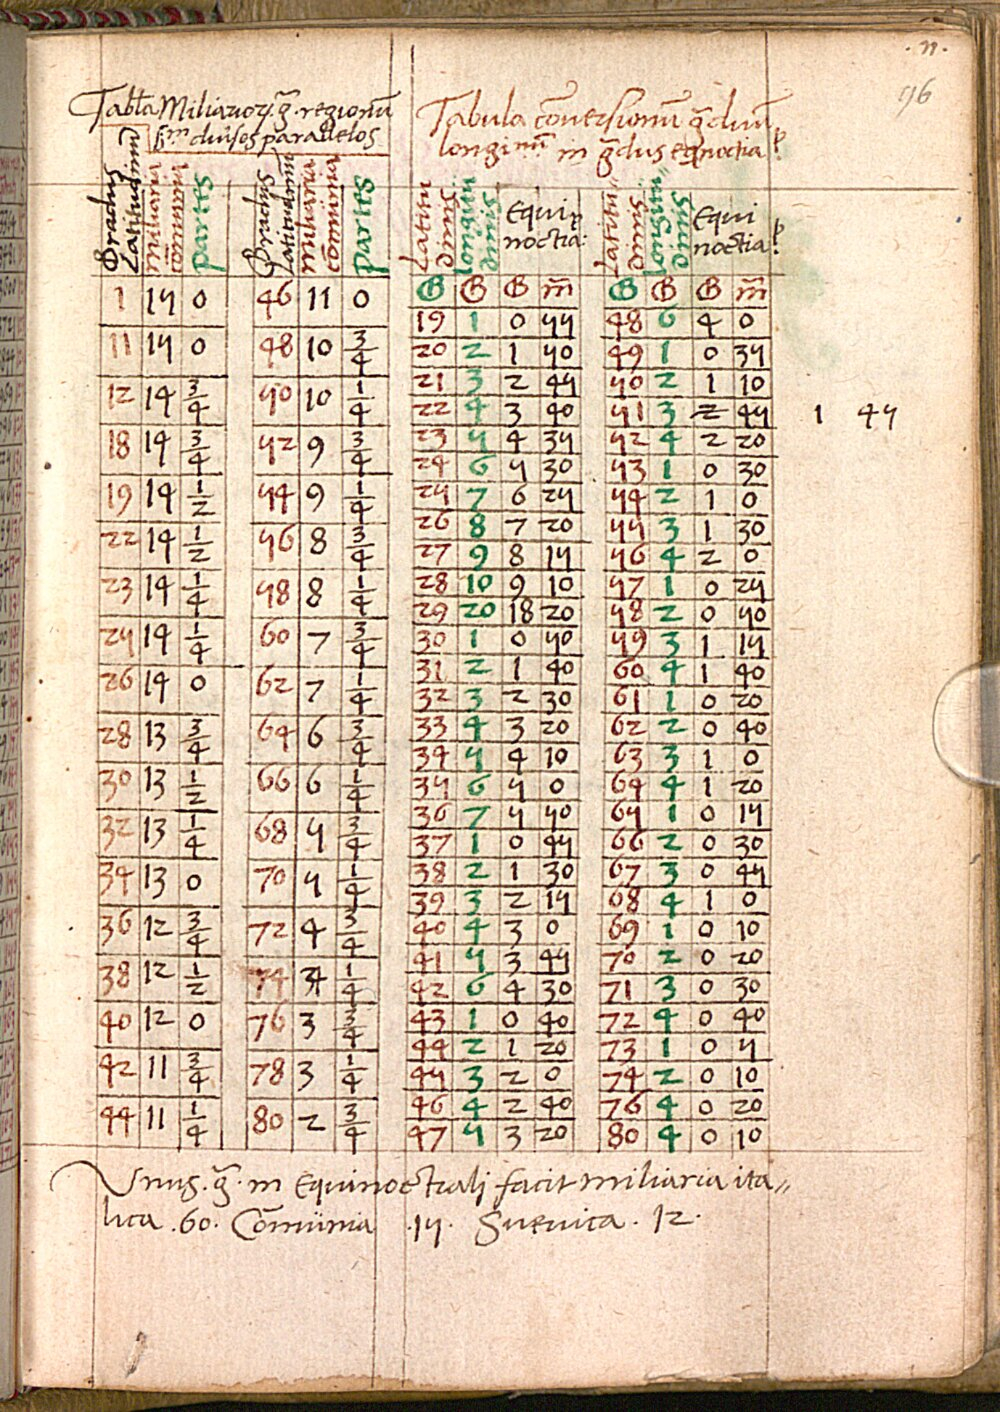 .n.
96
Tabla Miliarior. g̃. regionũ
scdm diuisos parallelos
Gradus Latitudinũ miliaria cõmunia partes Gradus Latitudinũ miliaria cõmunia partes
1 15 0 46 11 0
11 15 0 48 10 3/4
12 14 3/4 50 10 1/4
18 14 3/4 52 9 3/4
19 14 1/2 54 9 1/4
22 14 1/2 56 8 3/4
23 14 1/4 58 8 1/4
25 14 1/4 60 7 3/4
26 14 0 62 7 1/4
28 13 3/4 64 6 3/4
30 13 1/2 66 6 1/4
32 13 1/4 68 5 3/4
34 13 0 70 5 1/4
36 12 3/4 72 4 3/4
38 12 1/2 74 4 1/4
40 12 0 76 3 3/4
42 11 3/4 78 3 1/4
44 11 1/4 80 2 3/4
Tabula cõuersionũ g̃duũ
longinũ in g̃dus eqnoctia
Latitu dinis Longi Equi noctia: Latitu dinis Longi Equi noctia
G G G m̃ G G G m̃
19 1 0 55 48 6 4 0
20 2 1 50 49 1 0 35
21 3 2 45 50 2 1 10
22 4 3 40 51 3 2 45 1 45
23 5 4 35 52 4 2 20
24 6 5 30 53 1 0 30
25 7 6 25 54 2 1 0
26 8 7 20 55 3 1 30
27 9 8 15 56 4 2 0
28 10 9 10 57 1 0 25
29 20 18 20 58 2 0 50
30 1 0 50 59 3 1 15
31 2 1 40 60 4 1 40
32 3 2 30 61 1 0 20
33 4 3 20 62 2 0 40
34 5 4 10 63 3 1 0
35 6 5 0 64 4 1 20
36 7 5 50 65 1 0 15
37 1 0 45 66 2 0 30
38 2 1 30 67 3 0 45
39 3 2 15 68 4 1 0
40 4 3 0 69 1 0 10
41 5 3 45 70 2 0 20
42 6 4 30 71 3 0 30
43 1 0 40 72 4 0 40
44 2 1 20 73 1 0 5
45 3 2 0 74 2 0 10
46 4 2 40 76 4 0 20
47 5 3 20 80 4 0 10
Vnus. g̃. in Equinoctiali facit miliaria ita„
lica .60. Cõmunia .15. Sueuica. 12.